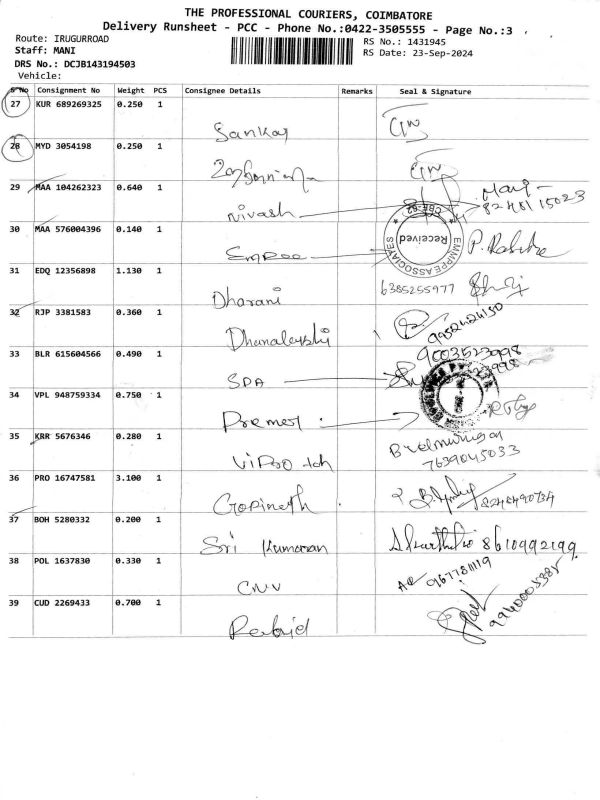 THE PROFESSIONAL COURIERS, COIMBATORE
Delivery Runsheet - PCC - Phone No.:0422-3505555 - Page No.:3
Route: IRUGURROAD RS No.: 1431945
Staff: MANI RS Date: 23-Sep-2024
DRS No.: DCJB143194503
Vehicle:
S No Consignment No Weight PCS Consignee Details Remarks Seal & Signature
27 KUR 689269325 0.250 1
Sankar
28 MYD 3054198 0.250 1
29 MAA 104262323 0.640 1
Nivash
30 MAA 576004396 0.140 1
Received
EMMPPE ASSOCIATES
31 EDQ 12356898 1.130 1
Dharani 6385255977
32 RJP 3381583 0.360 1
9952424150
33 BLR 615604566 0.490 1
9003523998
SDA
34 VPL 948759334 0.750 1
Premer
35 KRR 5676346 0.280 1
7639045033
36 PRO 16747581 3.100 1
Gopinath
37 BOH 5280332 0.200 1
Sri Kumaran 8610992199
38 POL 1637830 0.330 1
CNV
39 CUD 2269433 0.700 1